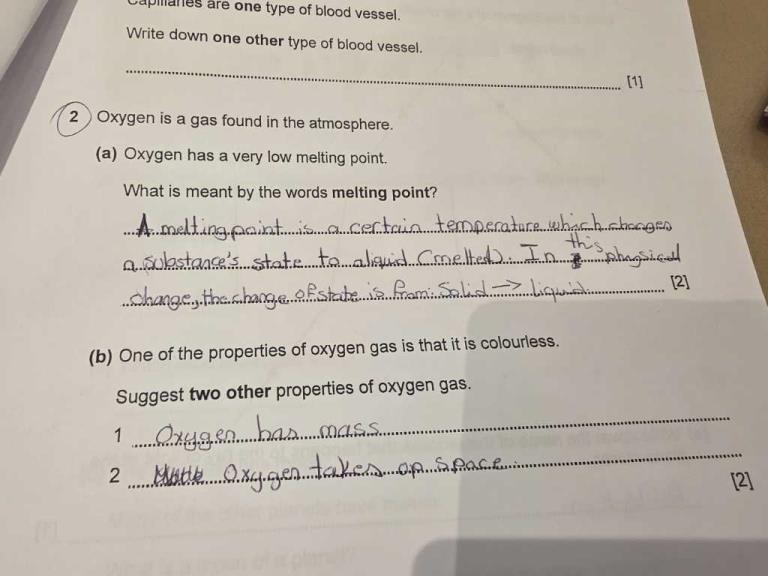 Capillaries are one type of blood vessel.
Write down one other type of blood vessel.
[1]
2 Oxygen is a gas found in the atmosphere.
(a) Oxygen has a very low melting point.
What is meant by the words melting point?
A melting point is a certain temperature which changes
a substance's state to a liquid (melted). In this physical
change, the change of state is from: Solid → liquid. [2]
(b) One of the properties of oxygen gas is that it is colourless.
Suggest two other properties of oxygen gas.
1 Oxygen has mass
2 Oxygen takes op space
[2]